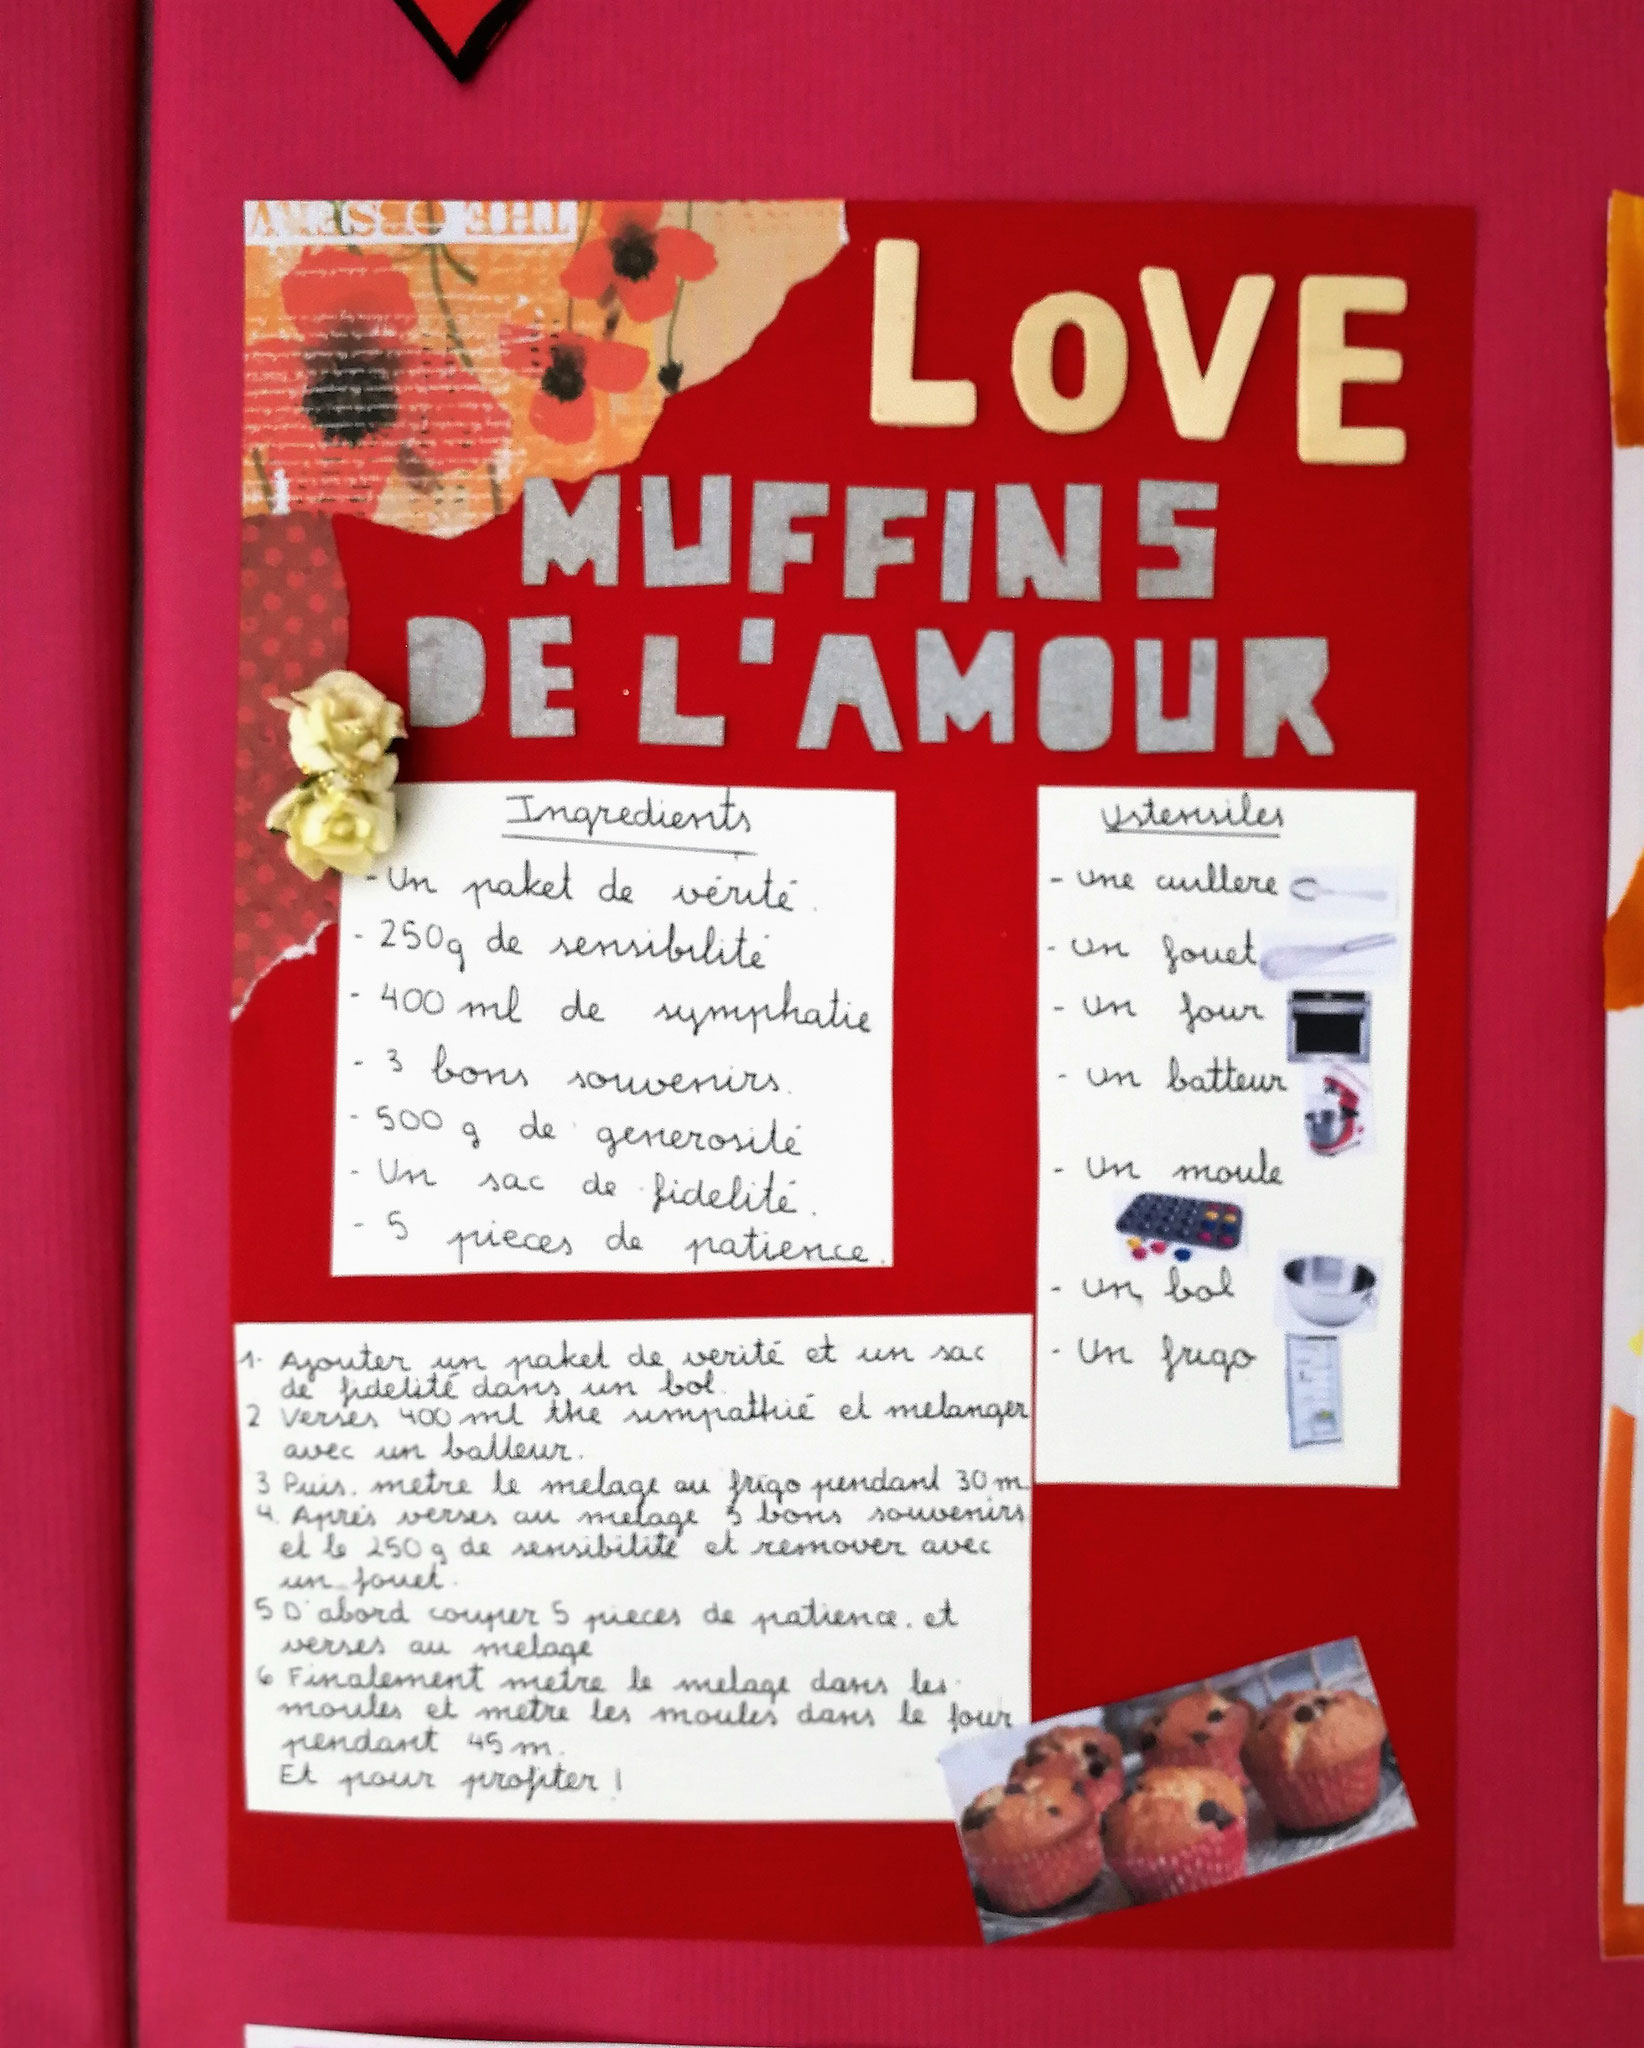 LOVE
MUFFINS
DE L'AMOUR
Ingredients
- Un paket de vérité.
- 250g de sensibilité
- 400 ml de symphatie
- 3 bons souvenirs.
- 500 g de generosité
- Un sac de fidelité.
- 5 pieces de patience.
Ustensiles
- une cuillere
- un fouet
- un four
- un batteur
- un moule
- un bol
- un frigo
1. Ajouter un paket de verité et un sac
de fidelité dans un bol.
2 Verses 400 ml the simpathié et melanger
avec un batteur.
3 Puis. metre le melage au frigo pendant 30 m
4. Aprés verses au melage 3 bons souvenirs
et le 250 g de sensibilité et remover avec
un fouet.
5 D'abord couper 5 pieces de patience. et
verses au melage
6 Finalement metre le melage dans les
moules et metre les moules dans le four
pendant 45 m.
Et pour profiter !